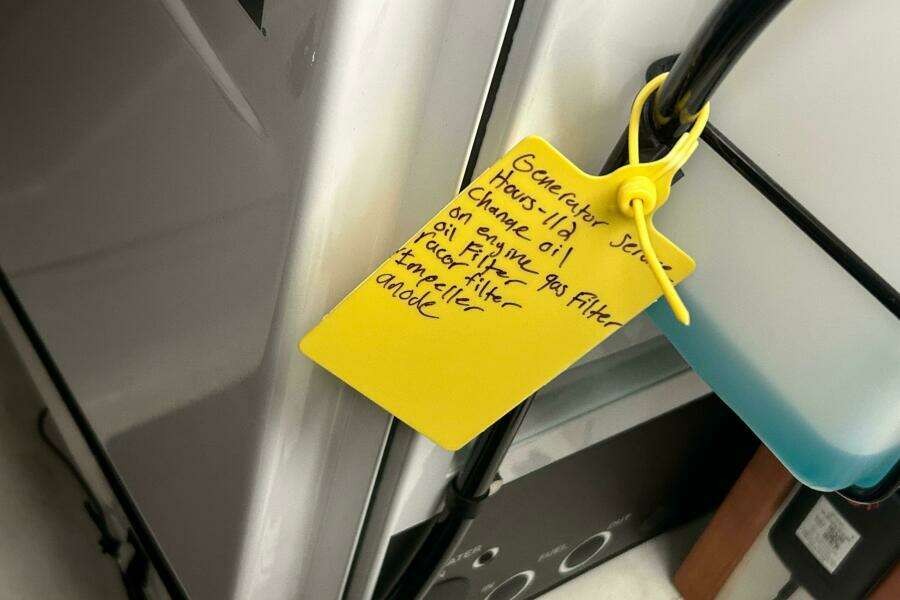 Generator Service
Hours-112
Change oil
on engine gas Filter
oil Filter
racor filter
Impeller
anode
FUEL
OUT